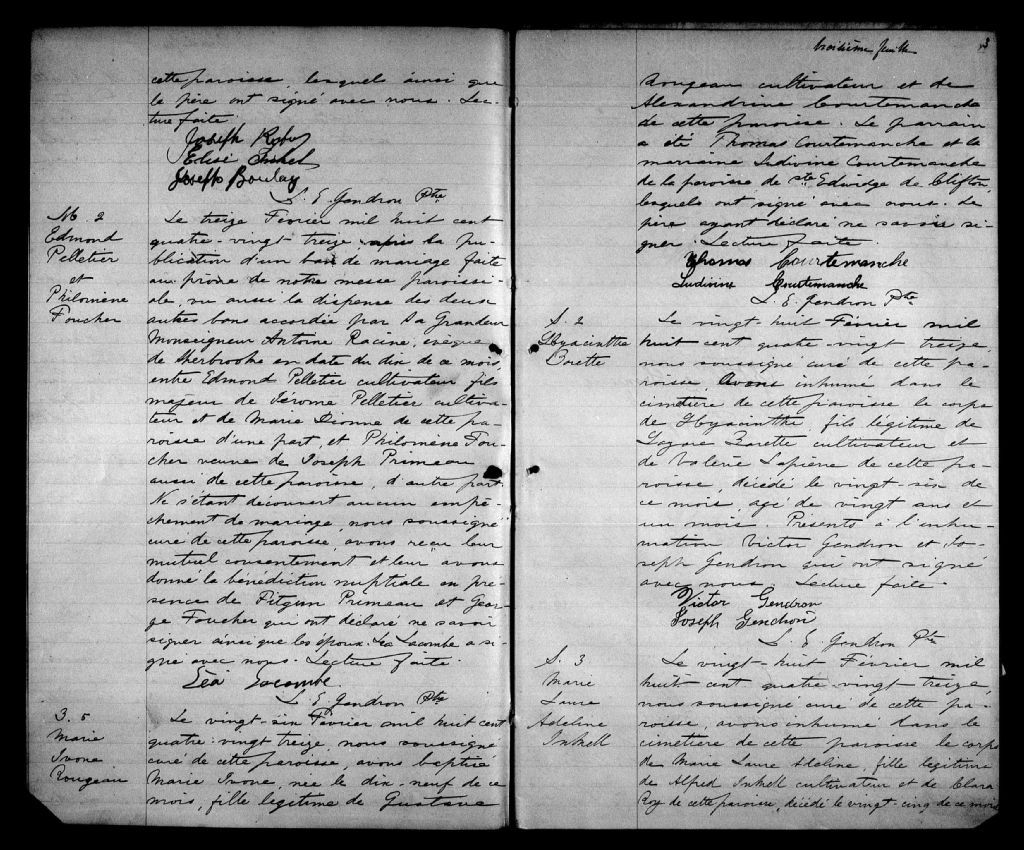 cette paroisse, lesquels ainsi que
le père ont signé avec nous. Lec-
ture faite
Joseph Roby
Elise Inkel
Joseph Boulay
L. E. Gendron Ptre
M. 2
Edmond
Pelletier
et
Philomène
Foucher
Le treize Février mil huit cent
quatre-vingt treize après la pu-
blication d'un ban de mariage faite
au prône de notre messe paroissi-
ale, vu aussi la dispense des deux
autres bans accordée par Sa Grandeur
Monseigneur Antoine Racine, évêque
de Sherbrooke en date du dix de ce mois,
entre Edmond Pelletier cultivateur fils
majeur de Jérome Pelletier cultiva-
teur et de Marie Dionne de cette pa-
roisse d'une part, et Philomène Fou-
cher veuve de Joseph Primeau
aussi de cette paroisse, d'autre part
Ne s'étant découvert aucun empê-
chement de mariage, nous soussigné
curé de cette paroisse, avons reçu leur
mutuel consentement et leur avons
donné la bénédiction nuptiale en pré-
sence de Primeau et Geor-
ge Foucher qui ont déclaré ne savoir
signer ainsi que les époux. Léa Lacombe a si-
gné avec nous. Lecture faite.
Léa Lacombe
L. E. Gendron Ptre
B. 5
Marie
Ivone
Rougeau
Le vingt-six Février mil huit cent
quatre-vingt treize, nous soussigné
curé de cette paroisse, avons baptisé
Marie Ivone, née le dix-neuf de ce
mois, fille légitime de Gustave
troisième feuille
3
Rougeau cultivateur et de
Alexandrine Courtemanche
de cette paroisse. Le parrain
a été Thomas Courtemanche et la
marraine Ludivine Courtemanche
de la paroisse de Ste Edwidge de Clifton,
lesquels ont signé avec nous. Le
père ayant déclaré ne savoir si-
gner. Lecture faite.
Thomas Courtemanche
Ludivine Courtemanche
L. E. Gendron Ptre
S. 2
Hyacinthe
Barette
Le vingt-huit Février mil
huit cent quatre vingt treize,
nous soussigné curé de cette pa-
roisse, avons inhumé dans le
cimetière de cette paroisse le corps
de Hyacinthe, fils légitime de
Lazare Barette cultivateur et
de Valérie Lapière de cette pa-
roisse, décédé le vingt-six de
ce mois, agé de vingt ans et
un mois. Présents à l'inhu-
mation Victor Gendron et Jo-
seph Gendron qui ont signé
avec nous. Lecture faite.
Victor Gendron
Joseph Gendron
L. E. Gendron Ptre
S. 3
Marie
Laure
Adeline
Inkell
Le vingt-huit Février mil
huit cent quatre vingt treize,
nous soussigné curé de cette pa-
roisse, avons inhumé dans le
cimetière de cette paroisse le corps
de Marie Laure Adeline, fille légitime
de Alfred Inkell cultivateur et de Clara
Roy de cette paroisse, décédé le vingt-cinq de ce mois